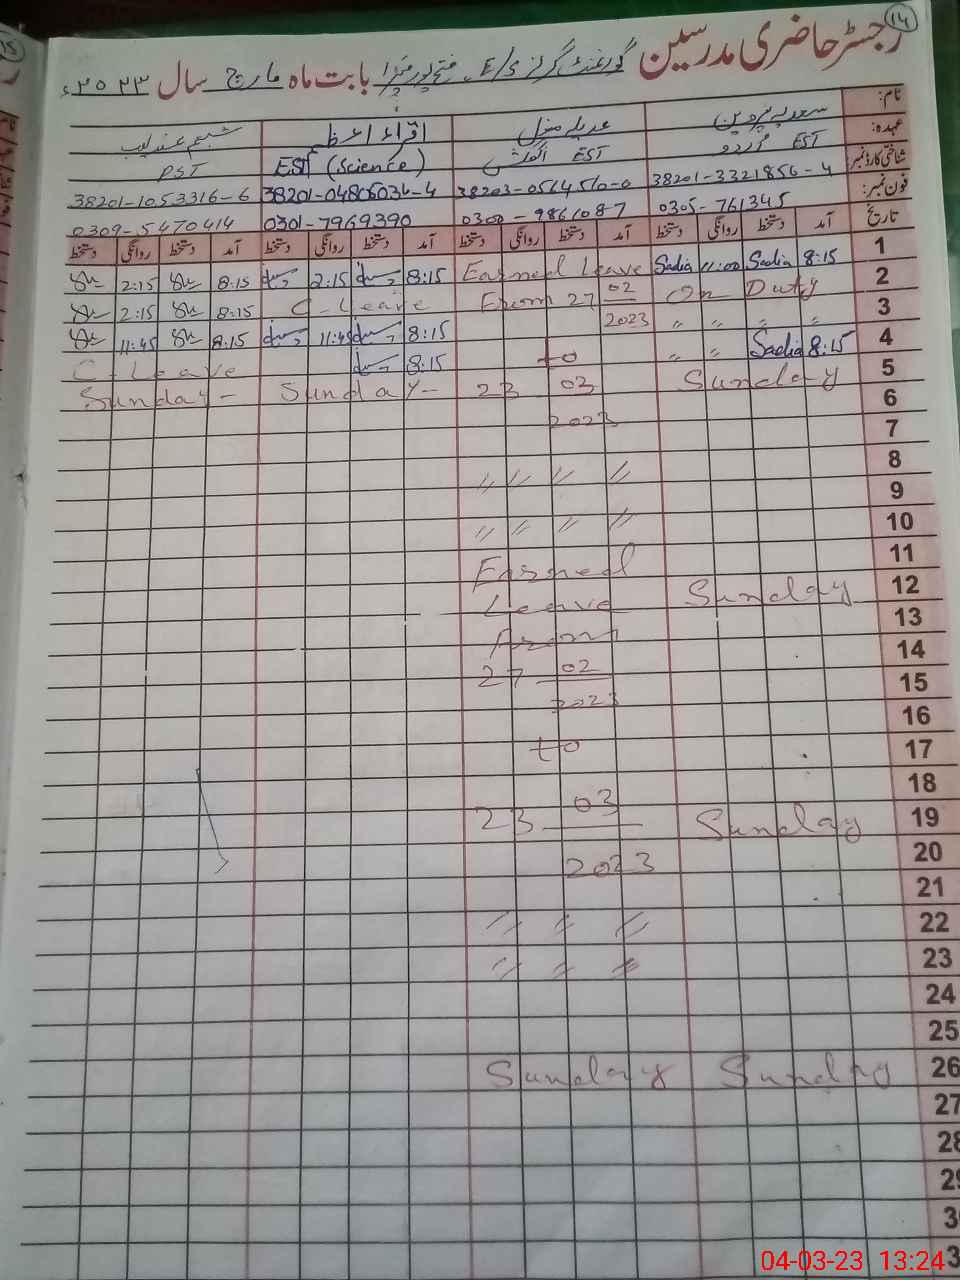 14
رجسٹر حاضری مدرسین گورنمنٹ گرلز E/S فتح پور بابت ماہ مارچ سال ٢٠٢٣ء
نام: سعدیہ پروین عدیلہ منزل اقراء اعظم شبنم عندلیب
عہدہ: EST اردو EST انگلش EST (Science) PST
شناختی کارڈ نمبر: 38201-3321856-4 38203-0564510-0 38201-04806036-4 38201-1053316-6
فون نمبر: 0305-761345 0300-9861087 0301-7969390 0309-5470414
تاریخ آمد دستخط روانگی دستخط آمد دستخط روانگی دستخط آمد دستخط روانگی دستخط آمد دستخط روانگی دستخط
1 8:15 Sadia 11:00 Sadia Earned Leave 8:15 2:15 8:15 2:15
2 On Duty From 27 02 C-Leave 8:15 2:15
3 " " " " 2023 8:15 11:45 8:15 11:45
4 8:15 Sadia " " to 8:15 C-Leave
5 Sunday 23 03 Sunday - Sunday -
6 2023
7
8 " " " "
9
10 " " " "
11 Earned
12 Sunday Leave
13 From
14 27 02
15 2023
16
17 to
18 03
19 Sunday 23
20 2023
21
22 " " "
23 " " "
24
25
26 Sunday Sunday
27
28
29
3
3
04-03-23 13:24